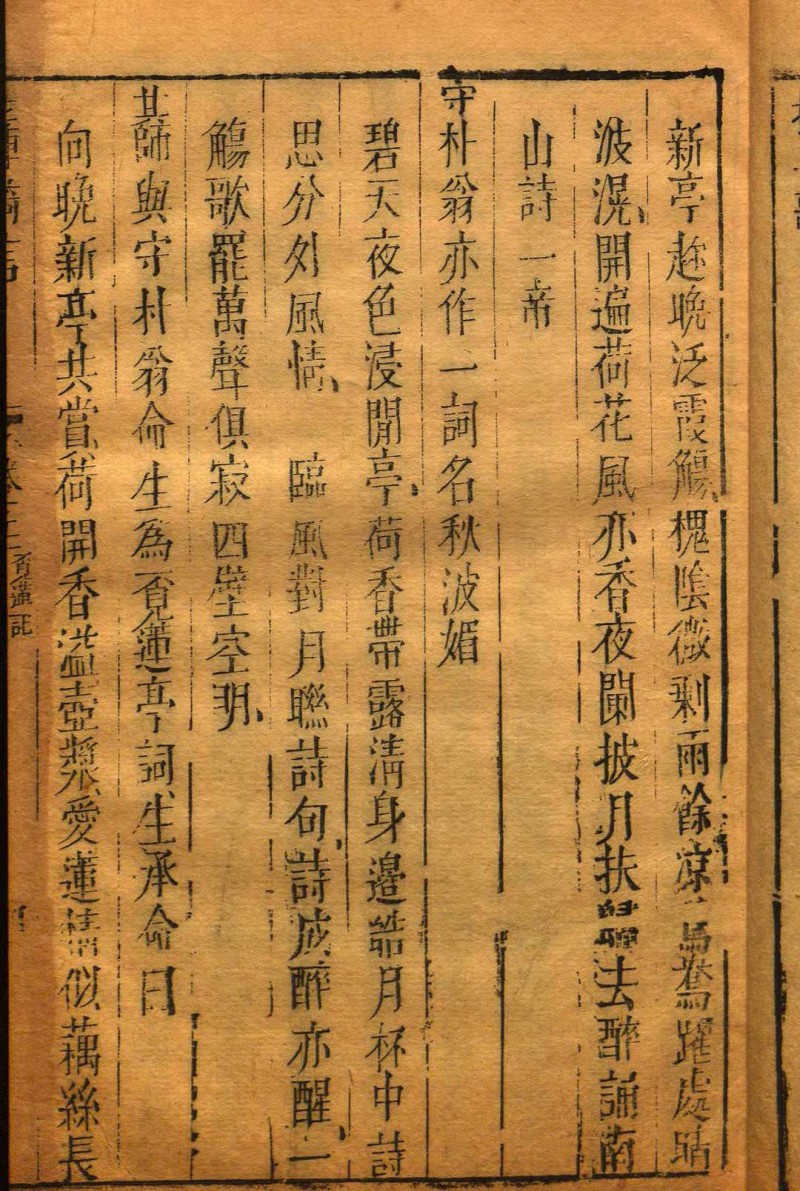 新亭趂晚泛霞觴槐陰微剩雨餘凉鴛鴦躍處玷
波滉開遍荷花風亦香夜闌披月扶去醉誦南
山詩一章
守朴翁亦作一詞名秋波媚
碧天夜色浸閒亭荷香帶露清身邊皓月杯中詩
思分外風情臨風對月聯詩句詩成醉亦醒一
觴歌罷萬聲俱寂四壁空明
其師與守朴翁命生為百蓮亭詞生承命曰
向晚新亭共賞荷開香溢壺漿愛蓮情似藕絲長